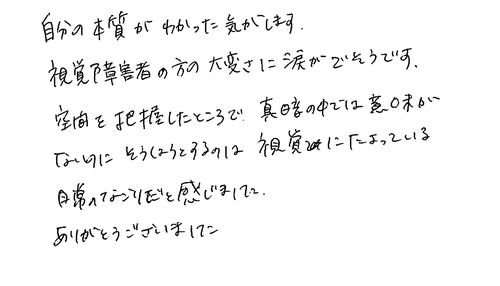 自分の本質がわかった気がします.
視覚障害者の方の大変さに涙がでそうです.
空間を把握したところで 真暗の中では意味が
ないのに そうしようとするのは 視覚にたよっている
日常のなごりだと感じました.
ありがとうございました